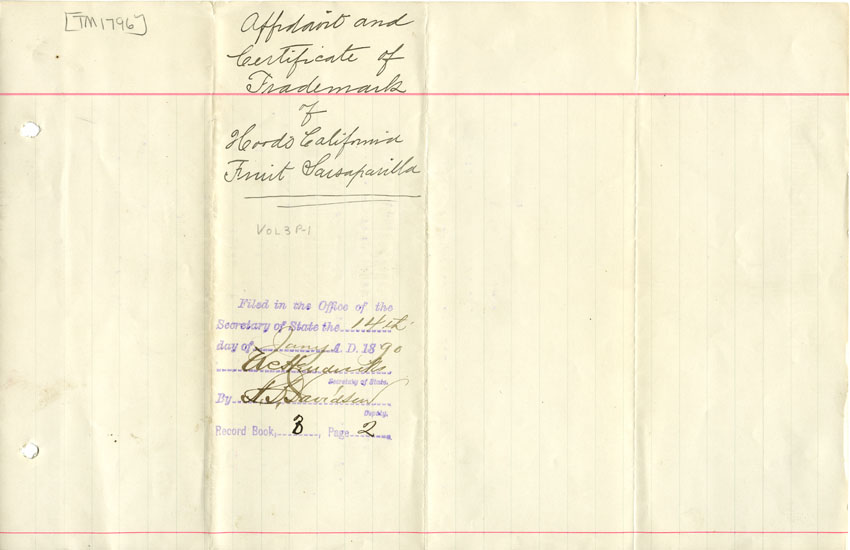 [TM1796]
Affidavit and
Certificate of
Trademark
of
Hoods California
Fruit Sarsaparilla
VOL 3 P-1
Filed in the Office of the
Secretary of State the 14th
day of Jany A. D. 1890
W C Hendricks
Secretary of State.
By Davidson
Deputy.
Record Book, 3, Page 2